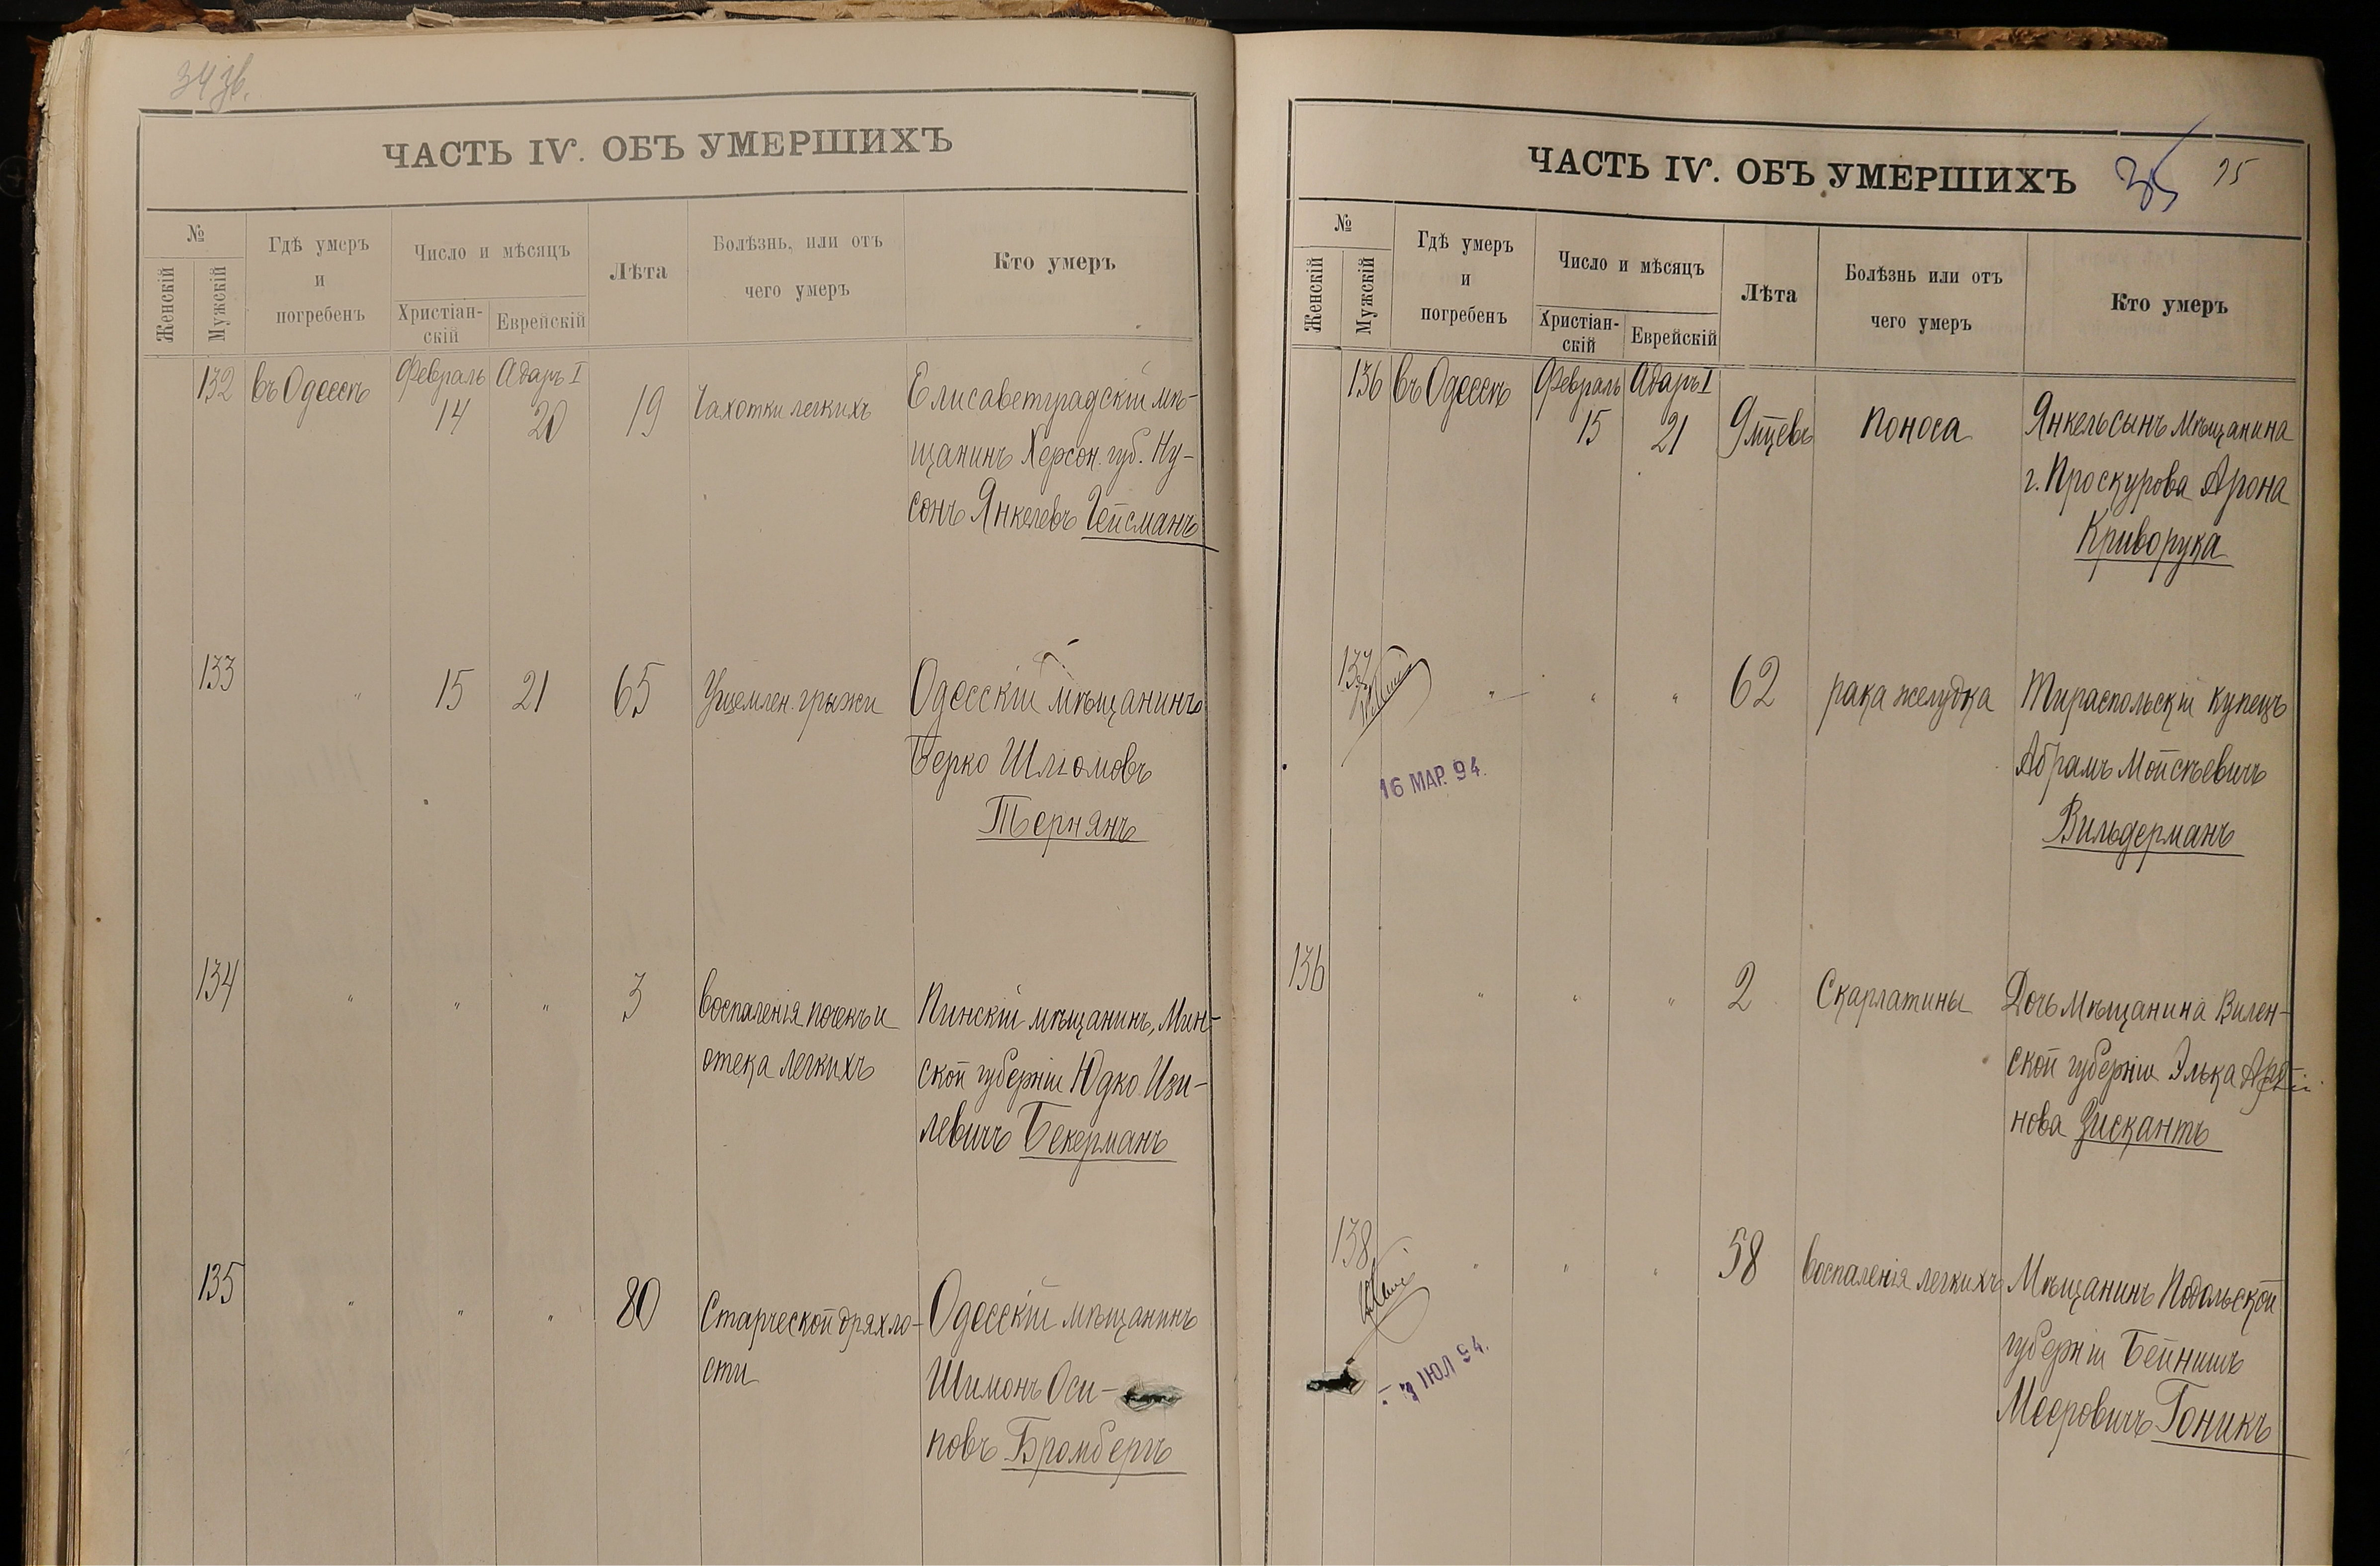 34 зв.
ЧАСТЬ IV. ОБЪ УМЕРШИХЪ
№
Женскій
Мужскій
Гдѣ умеръ
и
погребенъ
Число и мѣсяцъ
Христіан-
скій
Еврейскій
Лѣта
Болѣзнь, или отъ
чего умеръ
Кто умеръ
132 въ Одессѣ Февраль 14 Адаръ I 20 19 Чахотки легкихъ Елисаветградскій мѣ-
щанинъ Херсон. губ. Ну-
сонъ Янкелевъ Гейсманъ
133 " 15 21 65 Ущемлен. грыжи Одесскій мѣщанинъ
Берко Шлiомовъ
Тернянъ
134 " " " 3 воспаленія почекъ и Пинскій мѣщанинъ, Мин-
отека легкихъ ской губерніи Юдко Изи-
левичъ Бекерманъ
135 " " " 80 Старческой дряхло- Одесскій мѣщанинъ
сти Шимонъ Оси-
повъ Бромбергъ
ЧАСТЬ IV. ОБЪ УМЕРШИХЪ 35
№
Женскій
Мужскій
Гдѣ умеръ
и
погребенъ
Число и мѣсяцъ
Христіан-
скій
Еврейскій
Лѣта
Болѣзнь или отъ
чего умеръ
Кто умеръ
136 въ Одессѣ Февраль 15 Адаръ I 21 9 мцевъ Поноса Янкель сынъ мѣщанина
г. Проскурова Арона
Криворука
137 " " " 62 рака желудка Тираспольскій купецъ
Абрамъ Мойсѣевичъ
Вильдерманъ
16 МАР. 94.
136 " " " 2 Скарлатины Дочь мѣщанина Вилен-
ской губерніи Элька
нова Зискантъ
138 " " " 58 воспаленія легкихъ Мѣщанинъ Подольской
губерніи Бейнишъ
Мееровичъ Гоникъ
ІЮЛ 94.